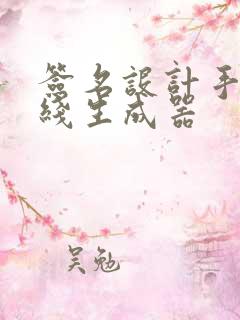 簽名設計手
綫生成器
吴勉